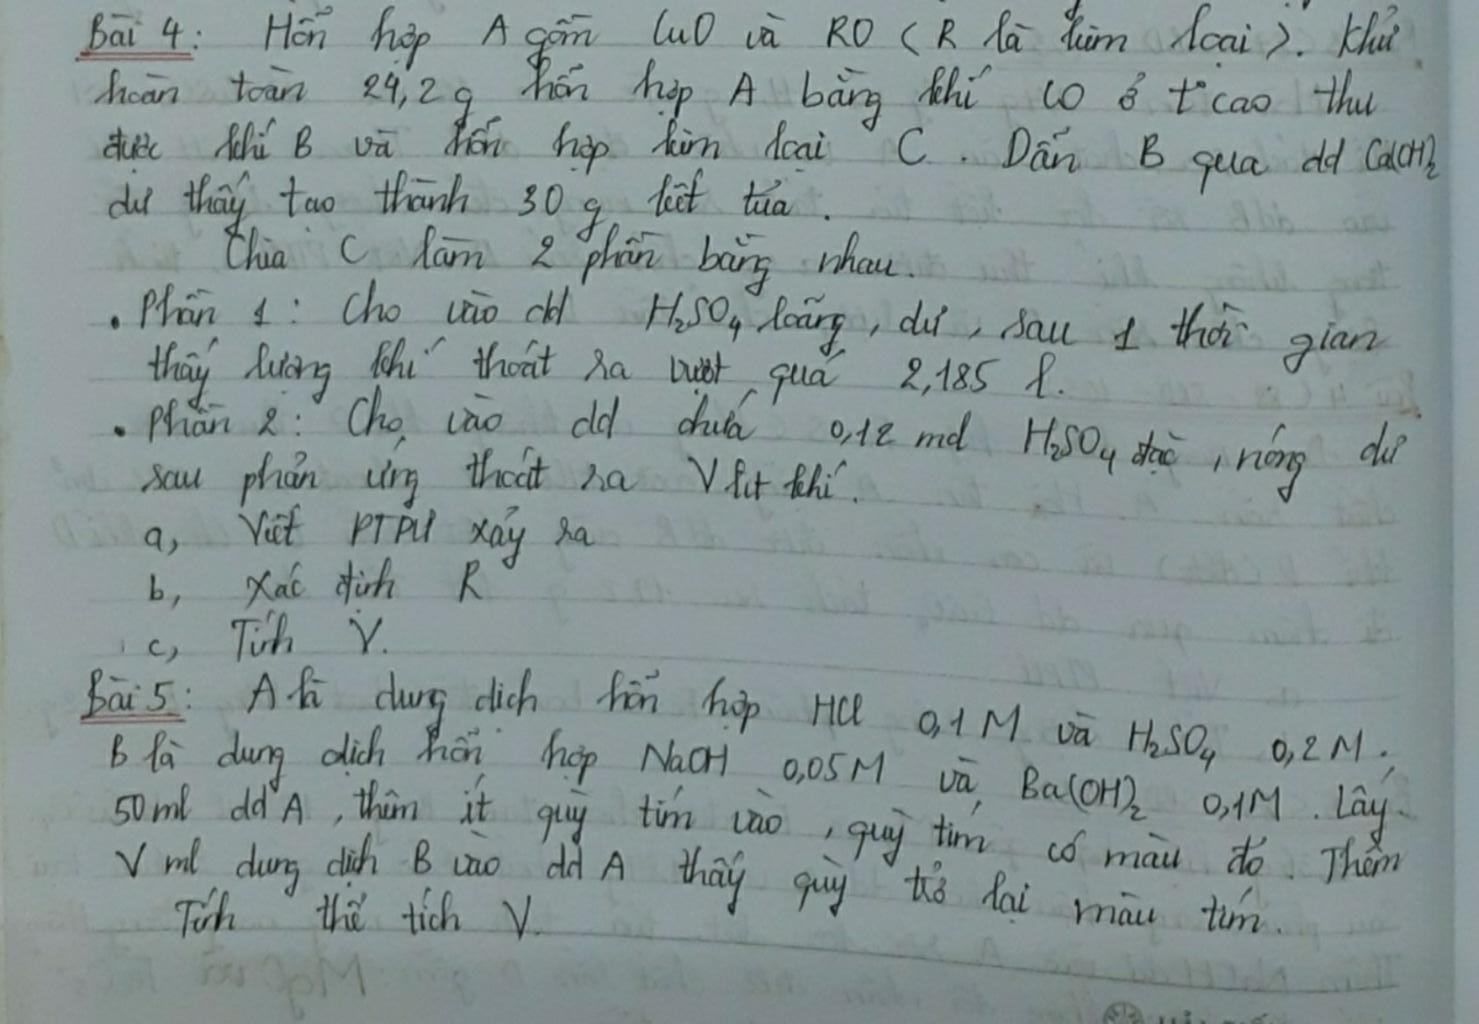 Bài 4: Hỗn hợp A gồm CuO và RO (R là kim loại). Khử
hoàn toàn 24,2g hỗn hợp A bằng khí CO ở t° cao thu
được khí B và hỗn hợp kim loại C. Dẫn B qua dd Ca(OH)2
dư thấy tạo thành 30 g kết tủa.
Chia C làm 2 phần bằng nhau.
• Phần 1: Cho vào dd H2SO4 loãng, dư, sau 1 thời gian
thấy lượng khí thoát ra vượt quá 2,185 l.
• Phần 2: Cho vào dd chứa 0,12 mol H2SO4 đặc, nóng dư
sau phản ứng thoát ra V lít khí.
a, Viết PTPƯ xảy ra
b, Xác định R
c, Tính V.
Bài 5: A là dung dịch hỗn hợp HCl 0,1M và H2SO4 0,2M.
B là dung dịch hỗn hợp NaOH 0,05M và Ba(OH)2 0,1M. Lấy
50ml dd A, thêm ít quỳ tím vào, quỳ tím có màu đỏ. Thêm
V ml dung dịch B vào dd A thấy quỳ trở lại màu tím.
Tính thể tích V.